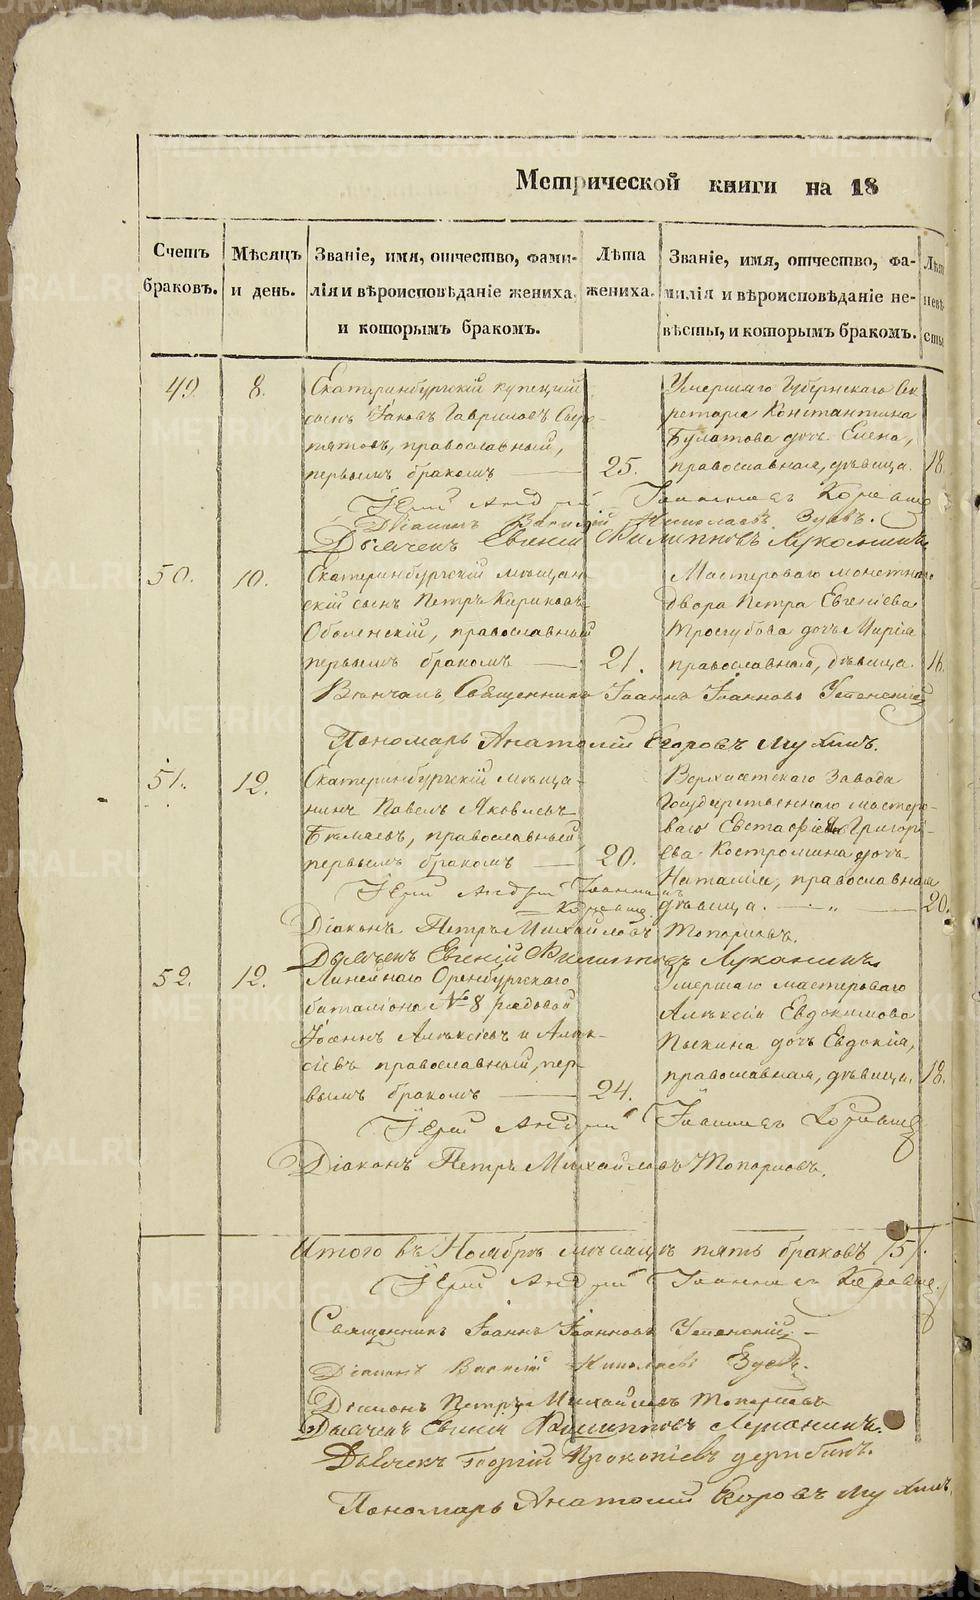 Метрической книги на 18
Счетъ браковъ.
Мѣсяцъ и день.
Званіе, имя, отчество, фами-
лія и вѣроисповѣданіе жениха,
и которымъ бракомъ.
Лѣта жениха.
Званіе, имя, отчество, фа-
милія и вѣроисповѣданіе не-
вѣсты, и которымъ бракомъ.
49. 8.
Екатеринбургскій купецкій
сынъ Іаковъ Гавриловъ
православный,
первымъ бракомъ 25.
Умершаго Губернскаго Се-
кретаря Константина
Булатова дочь Елена,
православная, дѣвица. 18.
Іерей Андрей Іоанновъ
Діаконъ Василій Николаевъ Зуевъ.
Дьячекъ Евгеній Филипповъ Луканинъ
50. 10.
Екатеринбургскій мѣщан-
скій сынъ Петръ Кириковъ
Оболенскій, православный
первымъ бракомъ 21.
Мастероваго монетнаго
двора Петра Евгеніева
дочь Марія
православная, дѣвица. 16.
Вѣнчалъ Священникъ Іоаннъ Іоанновъ Успенскій
Пономарь Анатолій Егоровъ Мухинъ.
51. 12.
Екатеринбургскій мѣща-
нинъ Павелъ Яковлевъ
православный
первымъ бракомъ 20.
Верхисетскаго завода
Государственнаго мастеро-
ваго Евстафія Григорі-
ева Костромина дочь
Наталія, православная
дѣвица. 20.
Іерей Андрей Іоанновъ
Діаконъ Петръ Михайловъ Топорковъ.
Дьячекъ Евгеній Филипповъ Луканинъ
52. 12.
Линейнаго Оренбургскаго
баталіона № 8 рядовой
Іоаннъ Алексіевъ
православный, пер-
вымъ бракомъ 24.
Умершаго мастероваго
Алексія Евдокимова
Пыхина дочь Евдокія,
православная, дѣвица. 18.
Іерей Андрей Іоанновъ
Діаконъ Петръ Михайловъ Топорковъ.
Итого въ Ноябрѣ мѣсяцѣ пять браковъ /5/.
Іерей Андрей Іоанновъ
Священникъ Іоаннъ Іоанновъ Успенскій
Діаконъ Василій Николаевъ Зуевъ.
Діаконъ Петръ Михайловъ Топорковъ
Дьячекъ Евгеній Филипповъ Луканинъ.
Дьячекъ Георгій Прокопіевъ Дерябинъ.
Пономарь Анатолій Егоровъ Мухинъ
METRIKI.GASO-URAL.RU